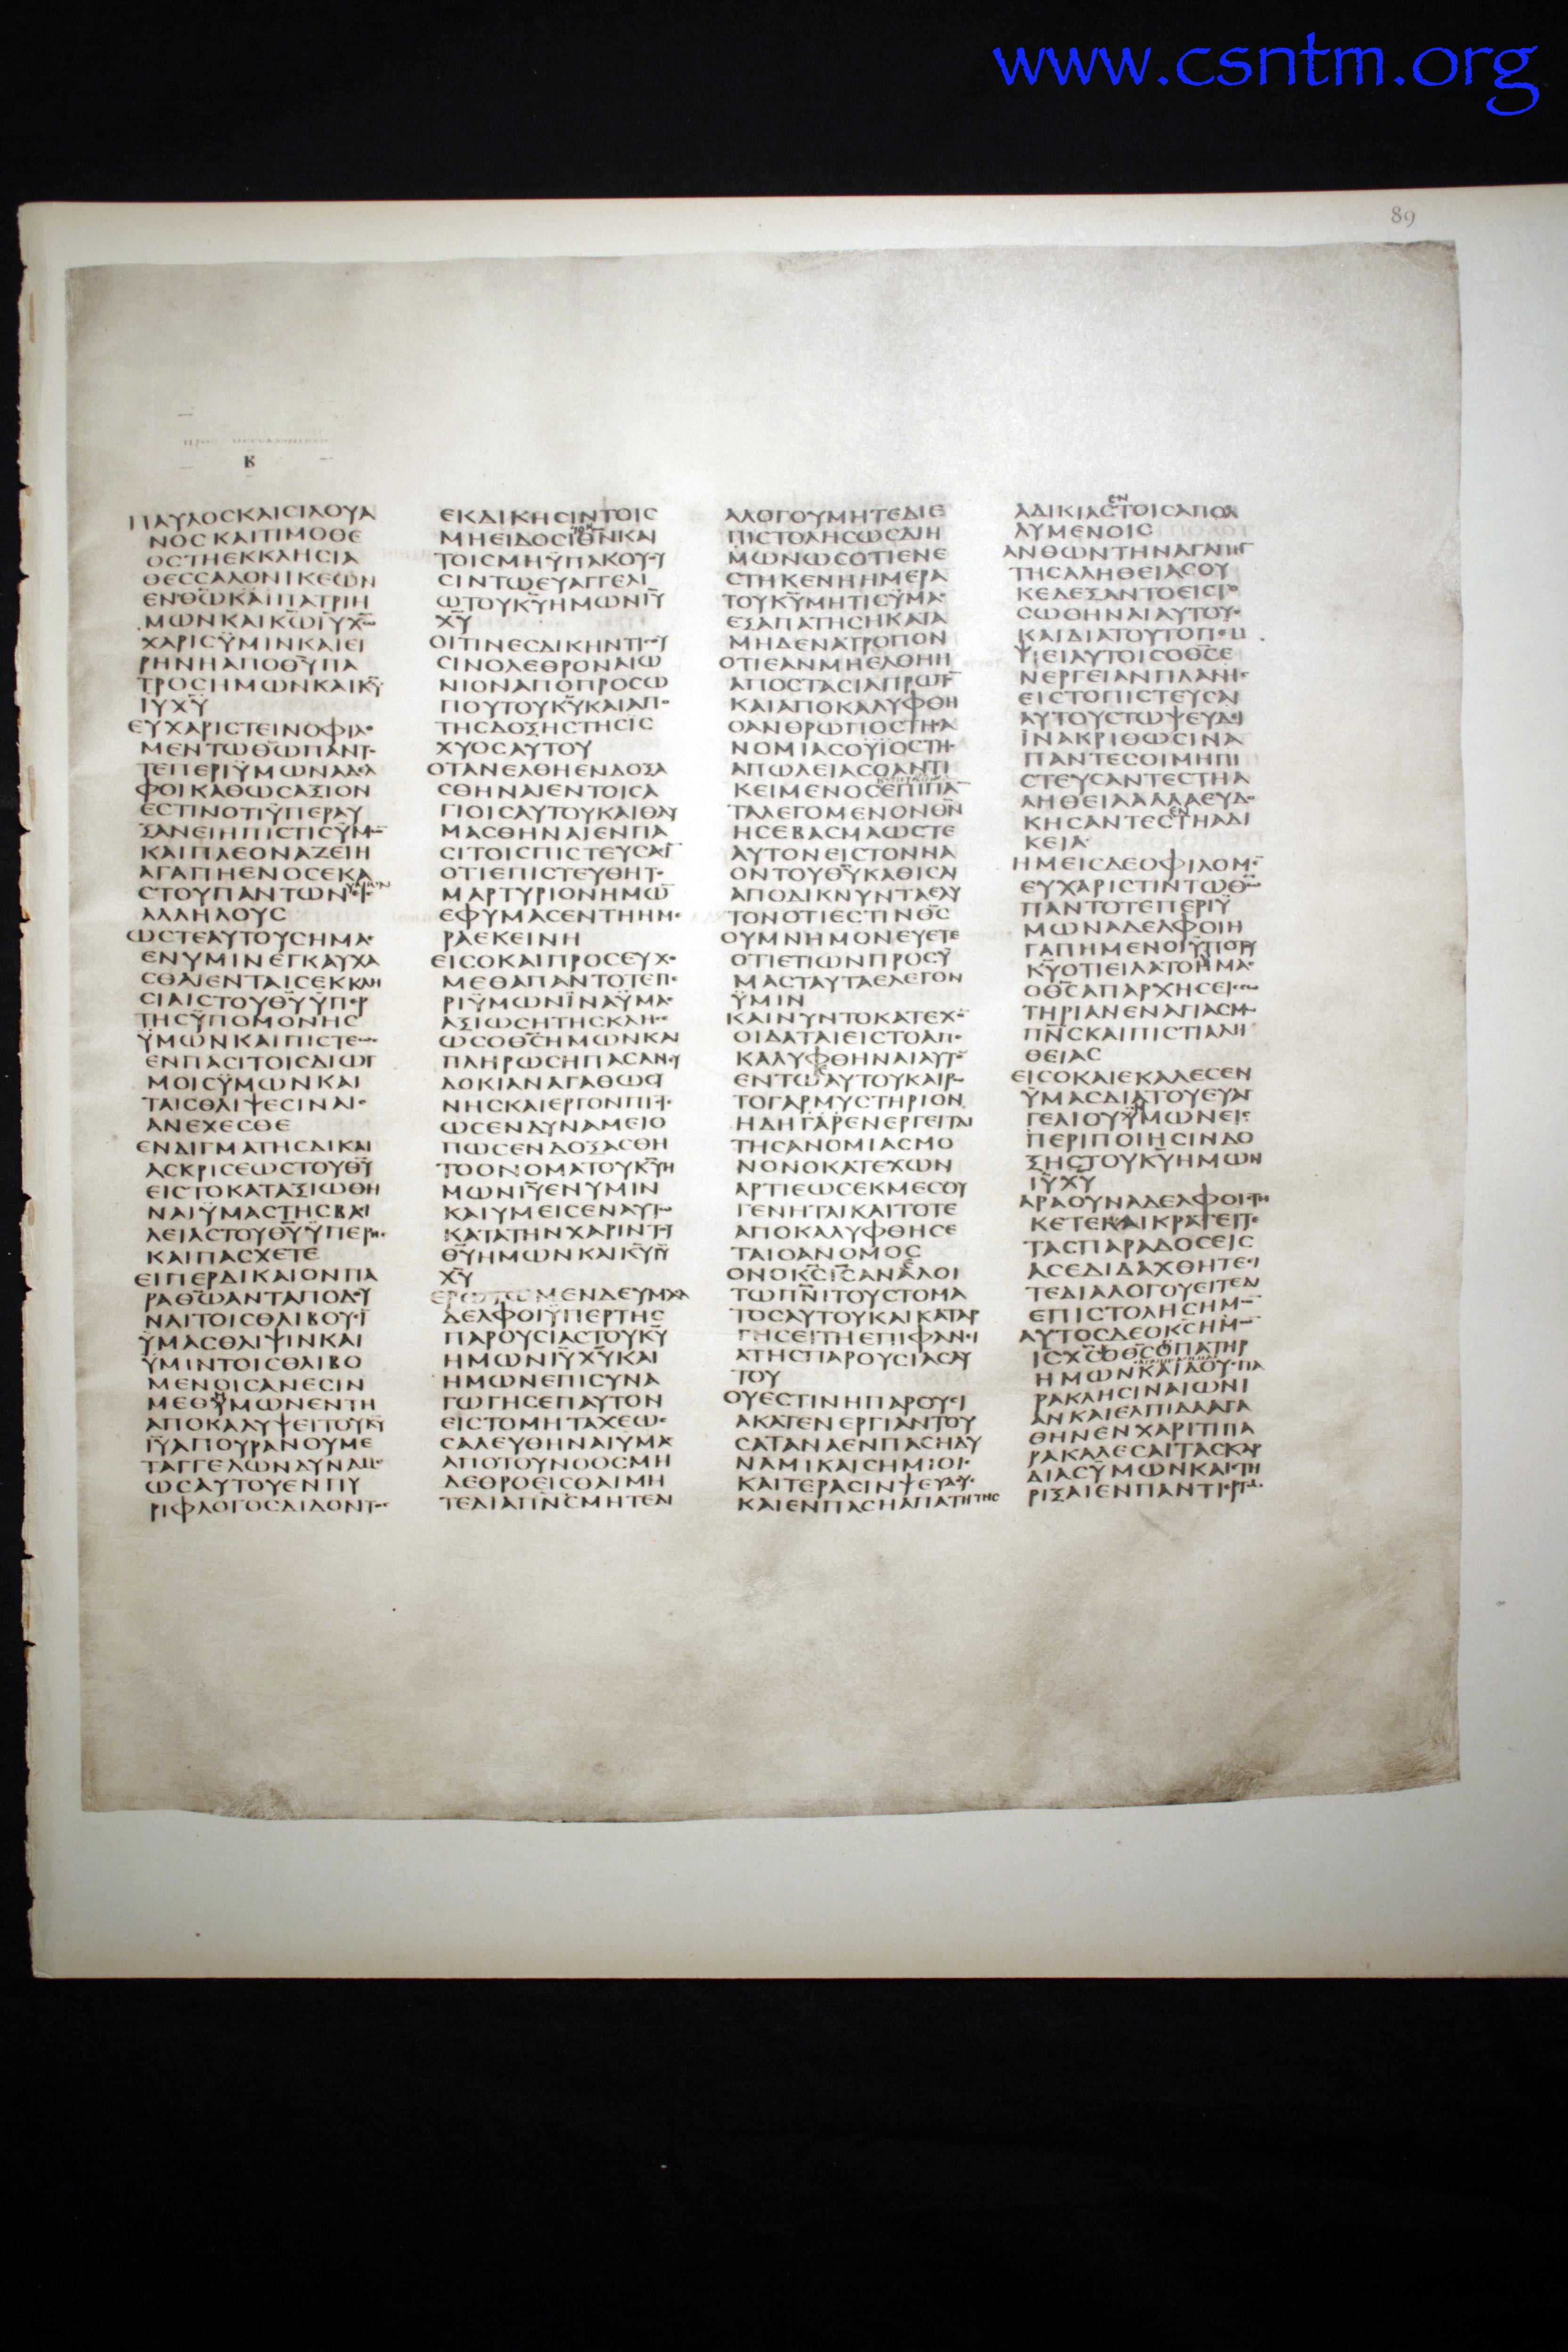 www.csntm.org
89
Β
ΠΑΥΛΟCΚΑΙCΙΛΟΥΑ
ΝΟCΚΑΙΤΙΜΟΘΕ
ΟCΤΗΕΚΚΛΗCΙΑ
ΘΕCCΑΛΟΝΙΚΕΩΝ
ΕΝΘΩΚΑΙΠΑΤΡΙΗ
ΜΩΝΚΑΙΚΩΙΥΧΩ
ΧΑΡΙCΫΜΙΝΚΑΙΕΙ
ΡΗΝΗΑΠΟΘΥΠΑ
ΤΡΟCΗΜΩΝΚΑΙΚΥ
ΙΥΧΥ
ΕΥΧΑΡΙCΤΕΙΝΟΦΙΛΟ
ΜΕΝΤΩΘΩΠΑΝΤΟ
ΤΕΠΕΡΙΫΜΩΝΑΔΕΛ
ΦΟΙΚΑΘΩCΑΞΙΟΝ
ΕCΤΙΝΟΤΙΫΠΕΡΑΥ
ΞΑΝΕΙΗΠΙCΤΙCΫΜΩ
ΚΑΙΠΛΕΟΝΑΖΕΙΗ
ΑΓΑΠΗΕΝΟCΕΚΑ
ΑΛΛΗΛΟΥC
ΩCΤΕΑΥΤΟΥCΗΜΑC
ΕΝΥΜΙΝΕΓΚΑΥΧΑ
CΘΑΙΕΝΤΑΙCΕΚΚΛΗ
CΙΑΙCΤΟΥΘΥΫΠΕΡ
ΤΗCΫΠΟΜΟΝΗC
ΫΜΩΝΚΑΙΠΙCΤΕΩC
ΕΝΠΑCΙΤΟΙCΔΙΩΓ
ΜΟΙCΫΜΩΝΚΑΙ
ΤΑΙCΘΛΙΨΕCΙΝΑΙC
ΑΝΕΧΕCΘΕ
ΕΝΔΙΓΜΑΤΗCΔΙΚΑΙ
ΑCΚΡΙCΕΩCΤΟΥΘΥ
ΕΙCΤΟΚΑΤΑΞΙΩΘΗ
ΝΑΙΫΜΑCΤΗCΒΑCΙ
ΛΕΙΑCΤΟΥΘΥΫΠΕΡΗC
ΚΑΙΠΑCΧΕΤΕ
ΕΙΠΕΡΔΙΚΑΙΟΝΠΑ
ΡΑΘΩΑΝΤΑΠΟΔΟΥ
ΝΑΙΤΟΙCΘΛΙΒΟΥCΙ
ΫΜΑCΘΛΙΨΙΝΚΑΙ
ΫΜΙΝΤΟΙCΘΛΙΒΟ
ΜΕΝΟΙCΑΝΕCΙΝ
ΜΕΘΥΜΩΝΕΝΤΗ
ΑΠΟΚΑΛΥΨΕΙΤΟΥΚΥ
ΙΥΑΠΟΥΡΑΝΟΥΜΕ
ΤΑΓΓΕΛΩΝΔΥΝΑΜΕ
ΩCΑΥΤΟΥΕΝΠΥ
ΡΙΦΛΟΓΟCΔΙΔΟΝΤΟC
ΕΚΔΙΚΗCΙΝΤΟΙC
ΜΗΕΙΔΟCΙΘΝΚΑΙ
ΤΟΙCΜΗΫΠΑΚΟΥΟΥ
CΙΝΤΩΕΥΑΓΓΕΛΙ
ΩΤΟΥΚΥΗΜΩΝΙΥ
ΧΥ
ΟΙΤΙΝΕCΔΙΚΗΝΤΙCΟΥ
CΙΝΟΛΕΘΡΟΝΑΙΩ
ΝΙΟΝΑΠΟΠΡΟCΩ
ΠΟΥΤΟΥΚΥΚΑΙΑΠΟ
ΤΗCΔΟΞΗCΤΗCΙC
ΧΥΟCΑΥΤΟΥ
ΟΤΑΝΕΛΘΗΕΝΔΟΞΑ
CΘΗΝΑΙΕΝΤΟΙCΑ
ΓΙΟΙCΑΥΤΟΥΚΑΙΘΑΥ
ΜΑCΘΗΝΑΙΕΝΠΑ
CΙΤΟΙCΠΙCΤΕΥCΑCΙ
ΟΤΙΕΠΙCΤΕΥΘΗΤΟ
ΜΑΡΤΥΡΙΟΝΗΜΩ
ΕΦΥΜΑCΕΝΤΗΗΜΕ
ΡΑΕΚΕΙΝΗ
ΕΙCΟΚΑΙΠΡΟCΕΥΧΟ
ΜΕΘΑΠΑΝΤΟΤΕΠΕ
ΡΙΫΜΩΝΪΝΑΫΜΑC
ΑΞΙΩCΗΤΗCΚΛΗCΕ
ΩCΟΘCΗΜΩΝΚΑΙ
ΠΛΗΡΩCΗΠΑCΑΝΕΥ
ΔΟΚΙΑΝΑΓΑΘΩCΥ
ΝΗCΚΑΙΕΡΓΟΝΠΙCΤΕ
ΩCΕΝΔΥΝΑΜΕΙΟ
ΠΩCΕΝΔΟΞΑCΘΗ
ΤΟΟΝΟΜΑΤΟΥΚΥΗ
ΜΩΝΙΥΕΝΥΜΙΝ
ΚΑΙΥΜΕΙCΕΝΑΥΤΩ
ΚΑΤΑΤΗΝΧΑΡΙΝΤΟΥ
ΘΥΗΜΩΝΚΑΙΚΥΙΥ
ΧΥ
ΕΡΩΤΩΜΕΝΔΕΥΜΑCΑ
ΔΕΛΦΟΙΫΠΕΡΤΗC
ΠΑΡΟΥCΙΑCΤΟΥΚΥ
ΗΜΩΝΙΥΧΥΚΑΙ
ΗΜΩΝΕΠΙCΥΝΑ
ΓΩΓΗCΕΠΑΥΤΟΝ
ΕΙCΤΟΜΗΤΑΧΕΩC
CΑΛΕΥΘΗΝΑΙΥΜΑC
ΑΠΟΤΟΥΝΟΟCΜΗ
ΔΕΘΡΟΕΙCΘΑΙΜΗ
ΤΕΔΙΑΠΝCΜΗΤΕΔΙ
ΑΛΟΓΟΥΜΗΤΕΔΙΕ
ΠΙCΤΟΛΗCΩCΔΙΗ
ΜΩΝΩCΟΤΙΕΝΕ
CΤΗΚΕΝΗΗΜΕΡΑ
ΤΟΥΚΥΜΗΤΙCΫΜΑC
ΕΞΑΠΑΤΗCΗΚΑΤΑ
ΜΗΔΕΝΑΤΡΟΠΟΝ
ΟΤΙΕΑΝΜΗΕΛΘΗΗ
ΑΠΟCΤΑCΙΑΠΡΩΤΟ
ΚΑΙΑΠΟΚΑΛΥΦΘΗ
ΟΑΝΘΡΩΠΟCΤΗCΑ
ΝΟΜΙΑCΟΫΪΟCΤΗC
ΑΠΩΛΕΙΑCΟΑΝΤΙ
ΚΕΙΜΕΝΟCΕΠΙΠΑ
ΤΑΛΕΓΟΜΕΝΟΝΘΝ
ΗCΕΒΑCΜΑΩCΤΕ
ΑΥΤΟΝΕΙCΤΟΝΝΑ
ΟΝΤΟΥΘΥΚΑΘΙCΑΙ
ΑΠΟΔΙΚΝΥΝΤΑΕΑΥ
ΤΟΝΟΤΙΕCΤΙΝΘC
ΟΥΜΝΗΜΟΝΕΥΕΤΕ
ΟΤΙΕΤΙΩΝΠΡΟCΫ
ΜΑCΤΑΥΤΑΕΛΕΓΟΝ
ΫΜΙΝ
ΚΑΙΝΥΝΤΟΚΑΤΕΧΟ
ΟΙΔΑΤΑΙΕΙCΤΟΑΠΟ
ΚΑΛΥΦΘΗΝΑΙΑΥΤΟ
ΕΝΤΩΑΥΤΟΥΚΑΙΡΩ
ΤΟΓΑΡΜΥCΤΗΡΙΟΝ
ΗΔΗΓΑΡΕΝΕΡΓΕΙΤΑΙ
ΤΗCΑΝΟΜΙΑCΜΟ
ΝΟΝΟΚΑΤΕΧΩΝ
ΑΡΤΙΕΩCΕΚΜΕCΟΥ
ΓΕΝΗΤΑΙΚΑΙΤΟΤΕ
ΑΠΟΚΑΛΥΦΘΗCΕ
ΤΑΙΟΑΝΟΜΟC
ΟΝΟΚCΙCΑΝΑΛΟΙ
ΤΩΠΝΙΤΟΥCΤΟΜΑ
ΤΟCΑΥΤΟΥΚΑΙΚΑΤΑΡ
ΓΗCΕΙΤΗΕΠΙΦΑΝΕΙ
ΑΤΗCΠΑΡΟΥCΙΑCΑΥ
ΤΟΥ
ΟΥΕCΤΙΝΗΠΑΡΟΥCΙ
ΑΚΑΤΕΝΕΡΓΙΑΝΤΟΥ
CΑΤΑΝΑΕΝΠΑCΗΔΥ
ΝΑΜΙΚΑΙCΗΜΙΟΙC
ΚΑΙΤΕΡΑCΙΝΨΕΥΔΟΥC
ΚΑΙΕΝΠΑCΗΑΠΑΤΗΤΗC
ΑΔΙΚΙΑCΤΟΙCΑΠΟΛ
ΛΥΜΕΝΟΙC
ΑΝΘΩΝΤΗΝΑΓΑΠΗ
ΤΗCΑΛΗΘΕΙΑCΟΥ
ΚΕΔΕΞΑΝΤΟΕΙCΤΟ
CΩΘΗΝΑΙΑΥΤΟΥC
ΚΑΙΔΙΑΤΟΥΤΟΠΕΜ
ΨΕΙΑΥΤΟΙCΟΘCΕ
ΝΕΡΓΕΙΑΝΠΛΑΝΗC
ΕΙCΤΟΠΙCΤΕΥCΑΙ
ΑΥΤΟΥCΤΩΨΕΥΔΕΙ
ΪΝΑΚΡΙΘΩCΙΝΑ
ΠΑΝΤΕCΟΙΜΗΠΙ
CΤΕΥCΑΝΤΕCΤΗΑ
ΛΗΘΕΙΑΑΛΛΑΕΥΔΟ
ΚΗCΑΝΤΕCΤΗΑΔΙ
ΚΕΙΑ
ΗΜΕΙCΔΕΟΦΙΛΟΜΕ
ΕΥΧΑΡΙCΤΙΝΤΩΘΩ
ΠΑΝΤΟΤΕΠΕΡΙΫ
ΜΩΝΑΔΕΛΦΟΙΗ
ΓΑΠΗΜΕΝΟΙΫΠΟΤΟΥ
ΚΥΟΤΙΕΙΛΑΤΟΗΜΑC
ΟΘCΑΠΑΡΧΗCΕΙCCΩ
ΤΗΡΙΑΝΕΝΑΓΙΑCΜΩ
ΠΝCΚΑΙΠΙCΤΙΑΛΗ
ΘΕΙΑC
ΕΙCΟΚΑΙΕΚΑΛΕCΕΝ
ΫΜΑCΔΙΑΤΟΥΕΥΑΓ
ΓΕΛΙΟΥΫΜΩΝΕΙC
ΠΕΡΙΠΟΙΗCΙΝΔΟ
ΞΗCΤΟΥΚΥΗΜΩΝ
ΙΥΧΥ
ΑΡΑΟΥΝΑΔΕΛΦΟΙCΤΗ
ΚΕΤΕΚΑΙΚΡΑΤΕΙΤΕ
ΤΑCΠΑΡΑΔΟCΕΙC
ΑCΕΔΙΔΑΧΘΗΤΕΕΙ
ΤΕΔΙΑΛΟΓΟΥΕΙΤΕΔΙ
ΕΠΙCΤΟΛΗCΗΜΩ
ΑΥΤΟCΔΕΟΚCΗΜΩ
ΙCΧCΟΘCΟΠΑΤΗΡ
ΗΜΩΝΚΑΙΔΟΥCΠΑ
ΡΑΚΛΗCΙΝΑΙΩΝΙ
ΑΝΚΑΙΕΛΠΙΔΑΑΓΑ
ΘΗΝΕΝΧΑΡΙΤΙΠΑ
ΡΑΚΑΛΕCΑΙΤΑCΚΑΡ
ΔΙΑCΫΜΩΝΚΑΙCΤΗ
ΡΙΞΑΙΕΝΠΑΝΤΙΕΡΓΩ